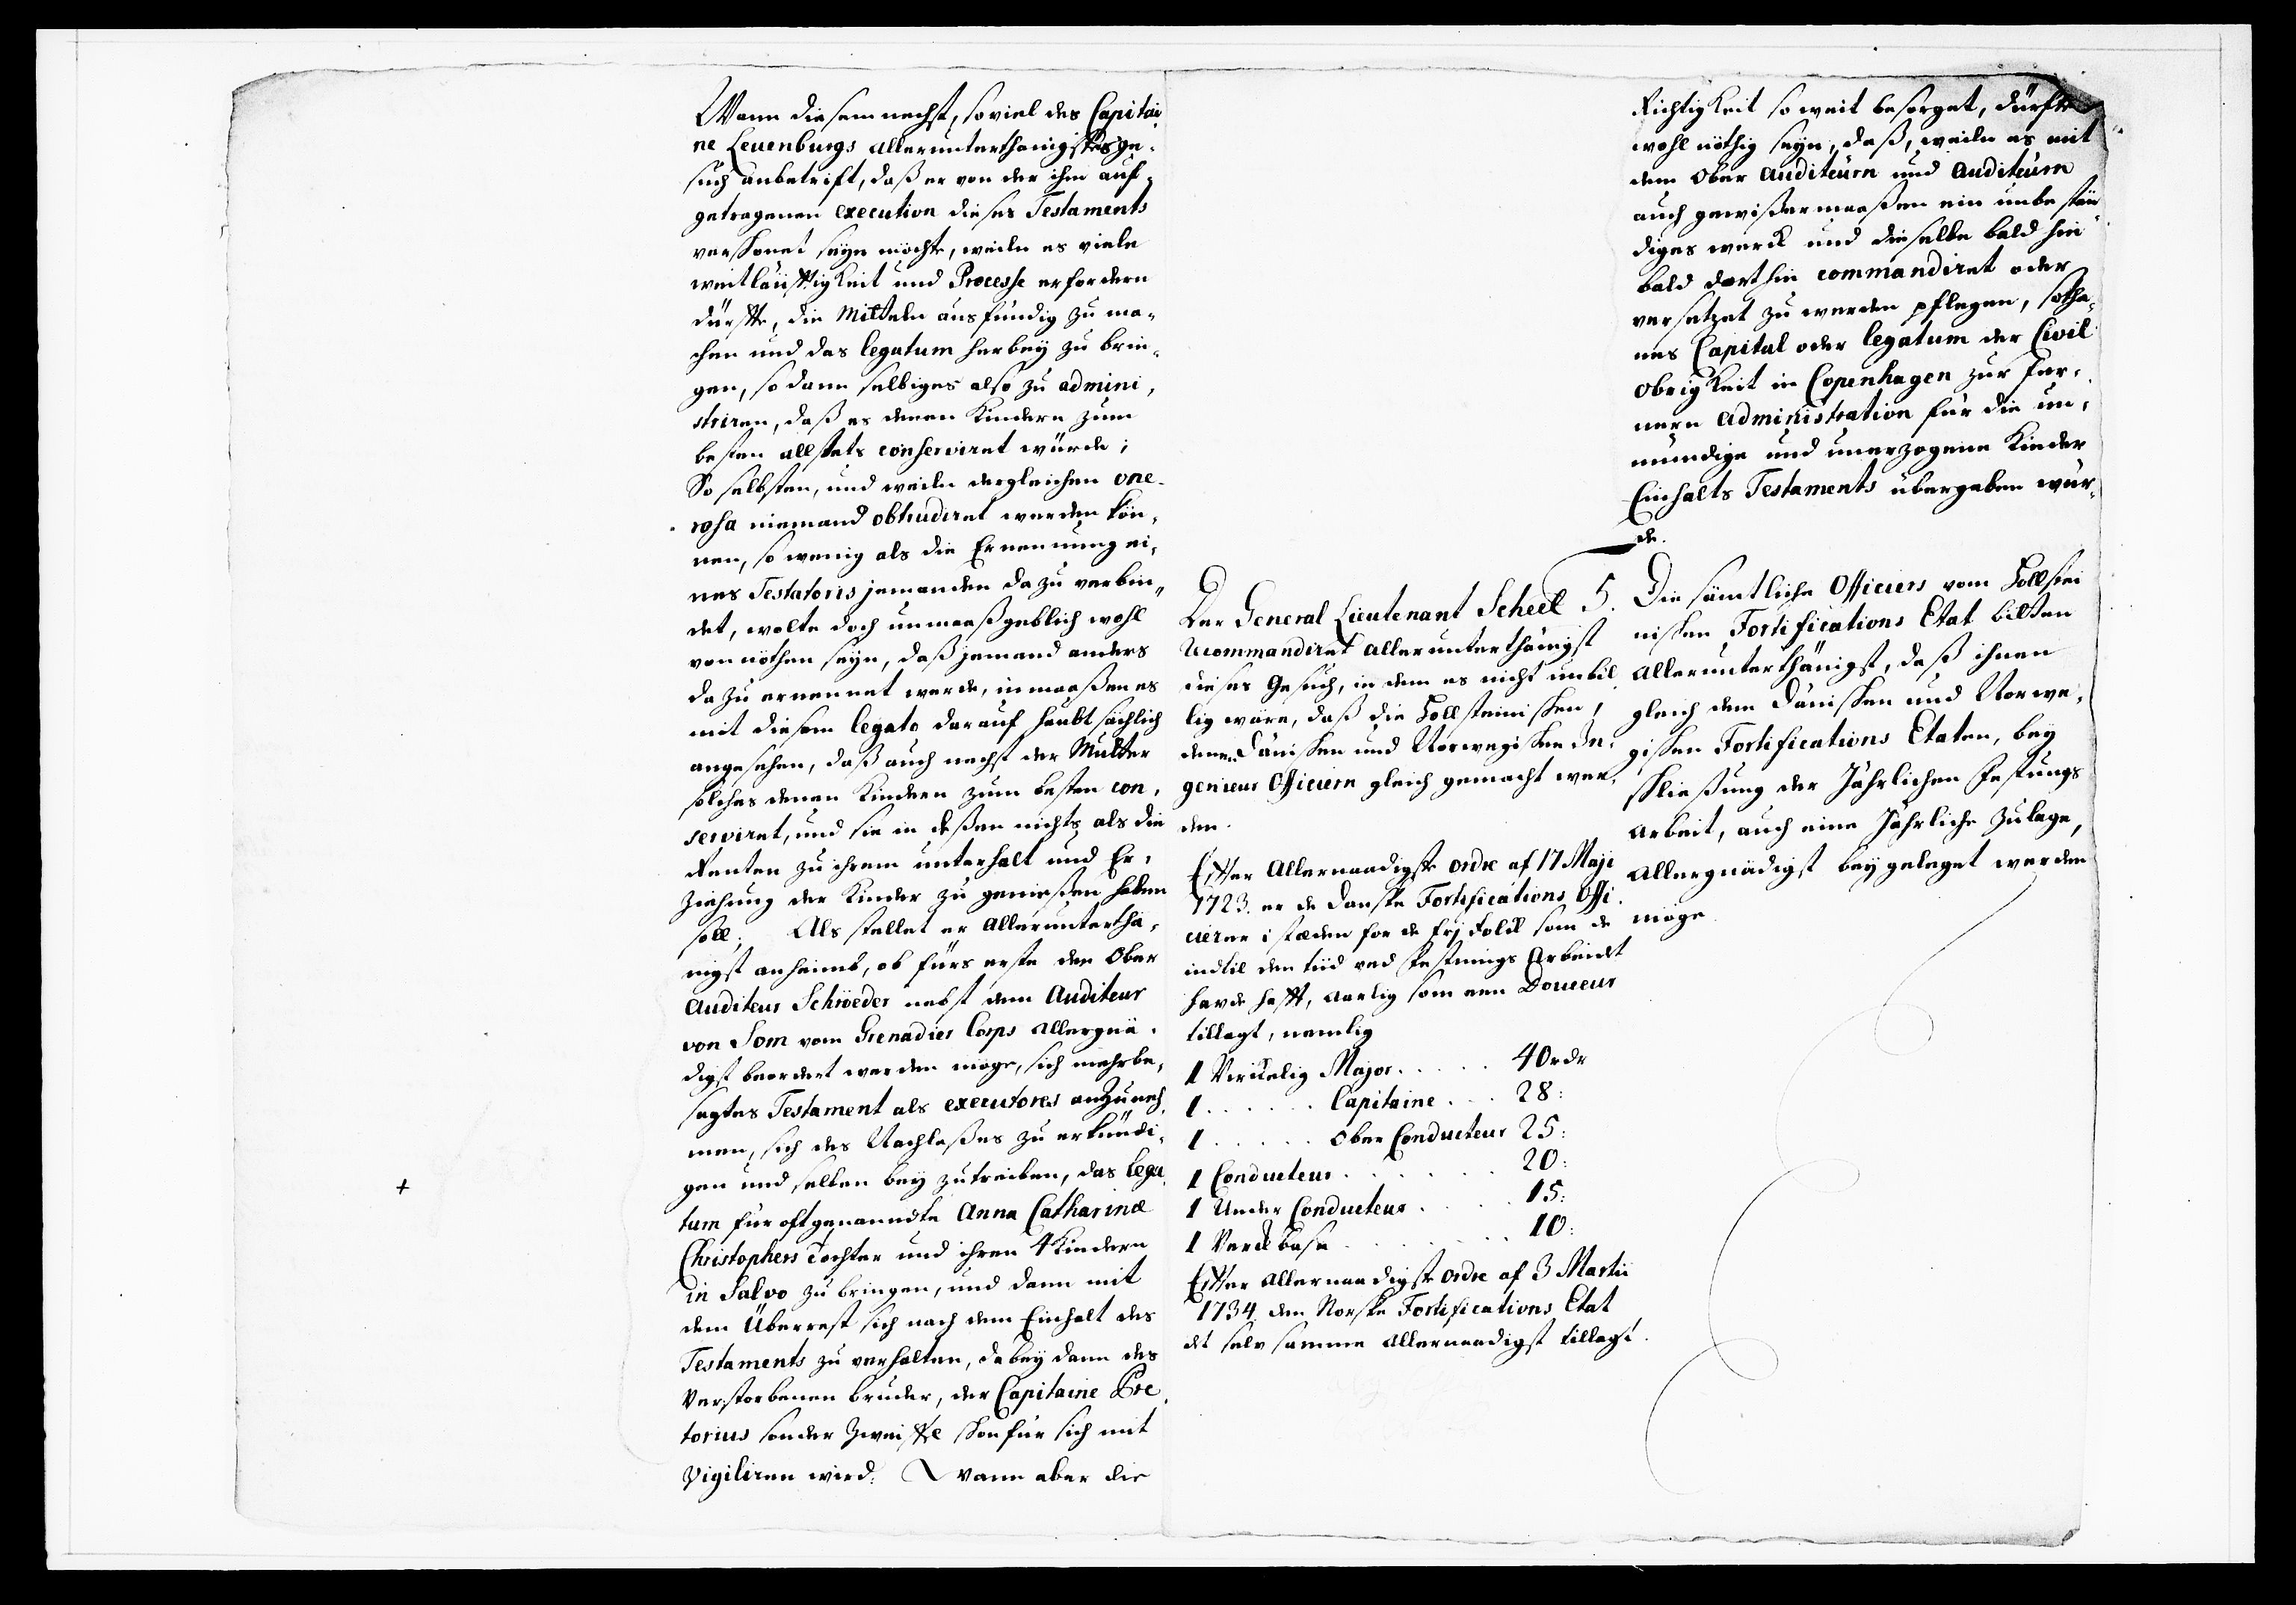 Wann diesem nechst, so viel des Capitai
ne Leuenburgs allerunterthänigstes ge-
such anbetrift, daß er von der ihm auf-
getragenen execution dieses Testaments
verschonet seyn möchte, weiln es viele
weitläufftigkeit und Processe erfordern
dürffte, die Mitteln ausfündig zu ma-
chen und das legatum herbey zu brin-
gen, so dann selbiges also zu admini-
striren, daß es denen Kindern zum
besten allstets conserviret würde;
So selbsten, und weiln dergleichen one-
rosa niemand obtrudiret werden kön-
nen, so wenig als die Ernennung ei-
nes Testatoris jemanden dazu verbin-
det, wolte doch unmaaßgeblich wohl
von nöthen seyn, daß jemand anders
dazu ernennet werde, inmaaßen es
mit diesem legato darauf haubtsächlich
angesehen, daß auch nechst der Mutter
solches denen Kindern zum besten con-
serviret, und sie in deßen nichts als die
Renten zu ihrem unterhalt und Er-
ziehung der Kinder zu genießen haben
soll; Als stellet er Allerunterthä-
nigst anheimb, ob fürs erste der Ober
Auditeur Schröeder nebst dem Auditeur
von Som vom Grenadier Corps Allergnä-
digst beordert werden möge, sich mehrbe-
sagtes Testament als executores anzuneh
men, sich des Nachlaßes zu erkündi-
gen und selben bey zutreiben, das lega
tum für oftgenanndte Anna Catharinæ
Christophers Tochter und ihren 4 Kindern
in Salvo zu bringen, und dann mit
dem Überrest sich nach dem Einhalt des
Testaments zu verhalten, dabey dann des
Verstorbenen bruder, der Capitaine Præ
torius sonder Zweiffel schon für sich mit
vigiliren wird. Wann aber die
Richtigkeit so weit besorget, dürfte
wohl nöthig seyn, daß, weiln es mit
dem Ober Auditeurn und Auditeurn
auch gewißermaaßen ein unbestän
diges werck und dieselbe bald hie
bald dorthin commandiret oder
versetzet zu werden pflegen, sotha-
nes Capital oder legatum der Civil
Obrigkeit in Copenhagen zur fer-
nern Administration für die un-
mündige und unerzogene Kinder
Einhalts Testaments übergeben wür-
de.
Der General Lieutenant Scheel
recommandiret allerunterthänigst
dieses Gesuch, in dem es nicht unbil
lig wäre, daß die Hollsteinischen,
denen Dänischen und Norwegischen In-
genieur Officiern gleich gemacht wer-
den.
Efter Allernaadigste ordre af 17 Maji
1723. er de Danske Fortifications Offi
cierer i stæden for de frj Folck som de
indtil den tiid ved Festnings Arbeidet
havde hafft, Aarlig som een Douceur
tillagt, nemlig
1 Virkelig Major . . . . . 40 rdr
1 . . . . . . Capitaine . . . 28:
1 . . . . . Ober Conducteur 25:
1 Conducteur . . . . . . 20:
1 Under Conducteur . . . . 15:
1 Verckbase . . . . . . . 10:
Efter Allernaadigste ordre af 3 Martii
1734. den Norske Fortifications Etat
det selv samme Allernaadigst tillagt.
5. Die sämtliche Officiers vom Hollstei
nischen Fortifications Etat bitten
Allerunterthänigst, daß ihnen
gleich dem Dänischen und Norwe-
gischen Fortifications Etaten, bey
schließung der Jährlichen Festungs
Arbeit, auch eine Jährliche Zulage,
Allergnädigst bey geleget werden
möge.